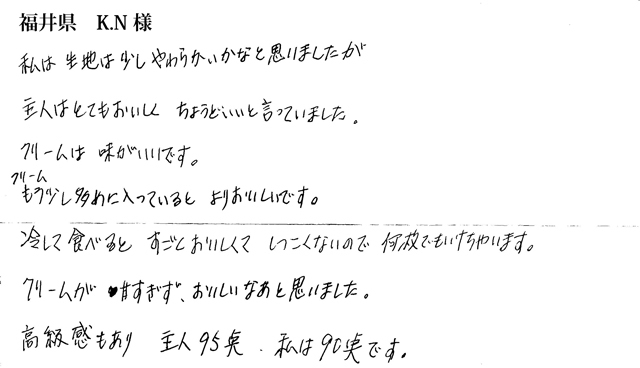 福井県 K.N 様
私は 生地は少しやわらかいかなと思いましたが
主人はとてもおいしく ちょうどいいと言っていました。
クリームは 味がいいです。
クリーム
もう少し多めに入っているとよりおいしいです。
冷して食べると すごくおいしくて しつこくないので 何枚でもいけちゃいます。
クリームが 甘すぎず、おいしいなあと思いました。
高級感もあり 主人95点、私は90点です。